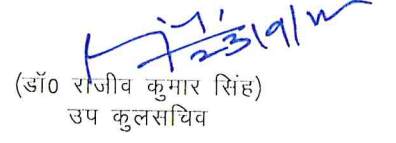 23/9/
(डॉ0 राजीव कुमार सिंह)
उप कुलसचिव